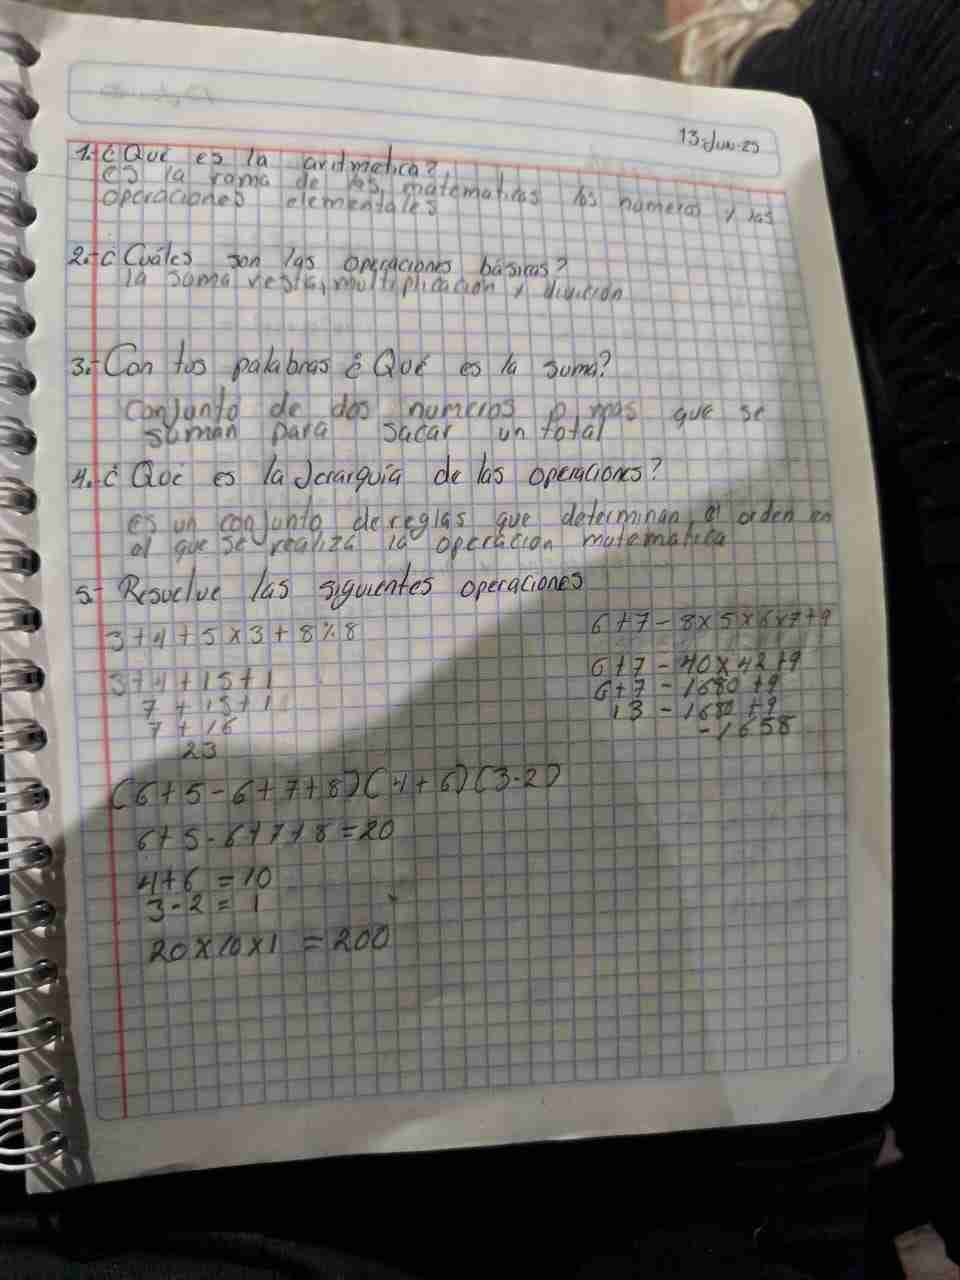 13-Jun-25
1.-¿Qué es la aritmetica?
es la rama de las matematicas los numeros y las
operaciones elementales
2.-¿Cuáles son las operaciones básicas?
la suma resta, multiplicacion y divicion
3.- Con tus palabras ¿Qué es la suma?
Conjunto de dos numeros o mas que se
suman para sacar un total
4.¿Qué es la Jerarquía de las operaciones?
es un conjunto de reglas que determinan el orden en
el que se realiza la operacion matematica
5- Resuelve las siguientes operaciones
3+4+5x3+8%8
3+4+15+1
7+15+1
7+16
23
6+7-8x5x6x7+9
6+7-40x42+9
6+7-1680+9
13-1680+9
-1658
(6+5-6+7+8)(4+6)(3-2)
6+5-6+7+8=20
4+6=10
3-2=1
20x10x1=200